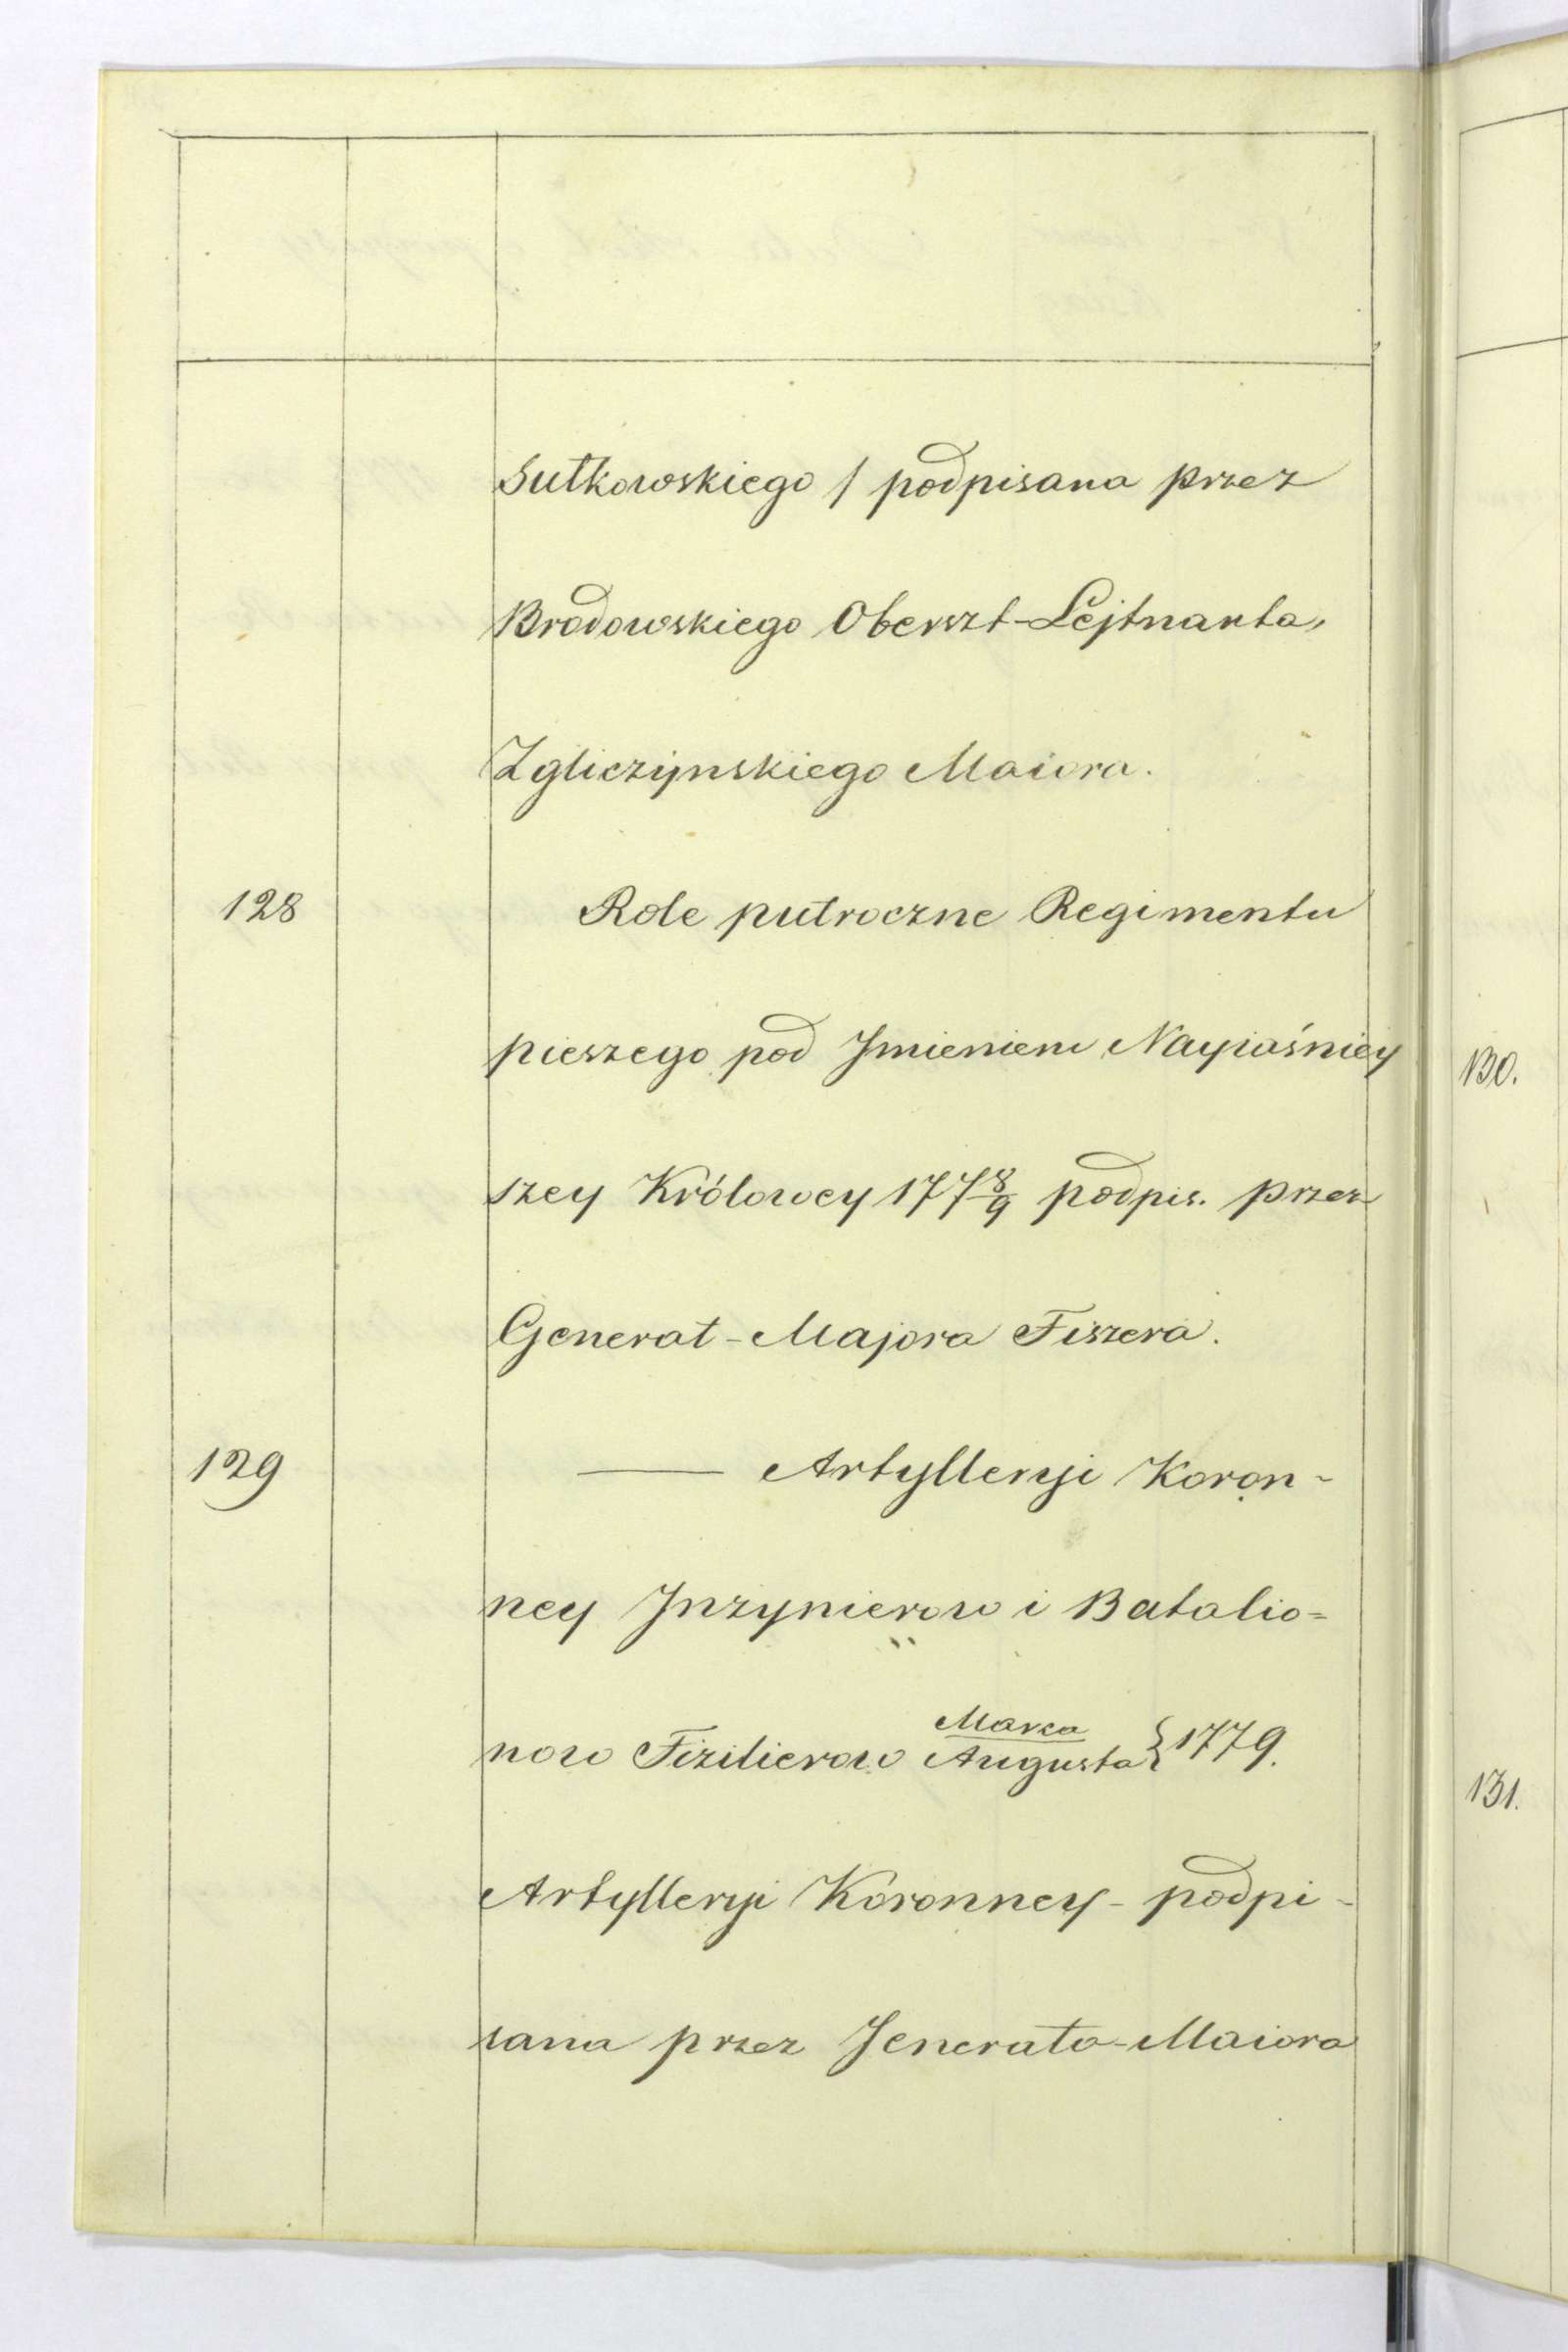 Sułkowskiego / podpisana przez
Brodowskiego Oberszt-Lejtnanta,
Zgliczynskiego Maiora.
128 Role pułroczne Regimentu
pieszego pod Jmieniem Nayiaśniey
szey Królowey 177 8/9 podpis. przez
Generał-Majora Fiszera.
129 — Artylleryi Koron-
ney Jnzynierow i Batalio=
now Fizilierow Marca/Augusta } 1779.
Artylleryi Koronney - podpi-
sana przez Jenerała-Maiora
130.
131.